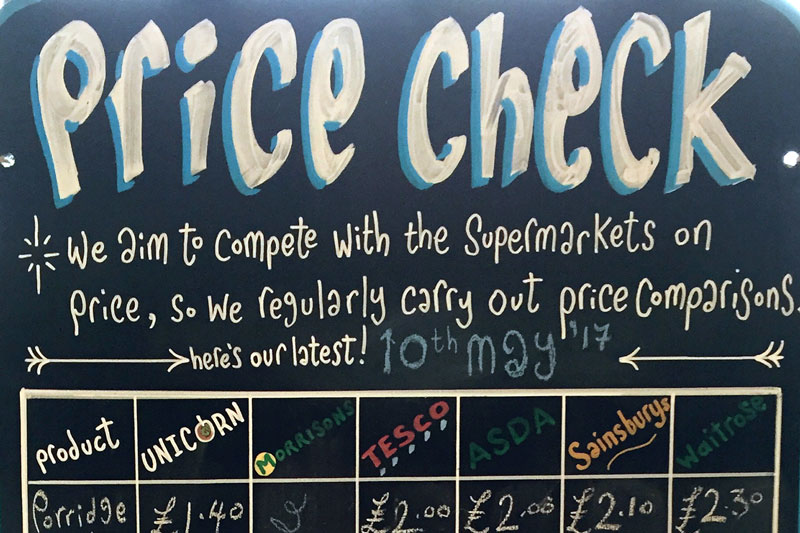 Price Check
We aim to compete with the Supermarkets on
price, so we regularly carry out price comparisons.
here's our latest! 10th may '17
product UNICORN MORRISONS TESCO ASDA Sainsburys Waitrose
Porridge £1.40 £2.00 £2.00 £2.10 £2.30